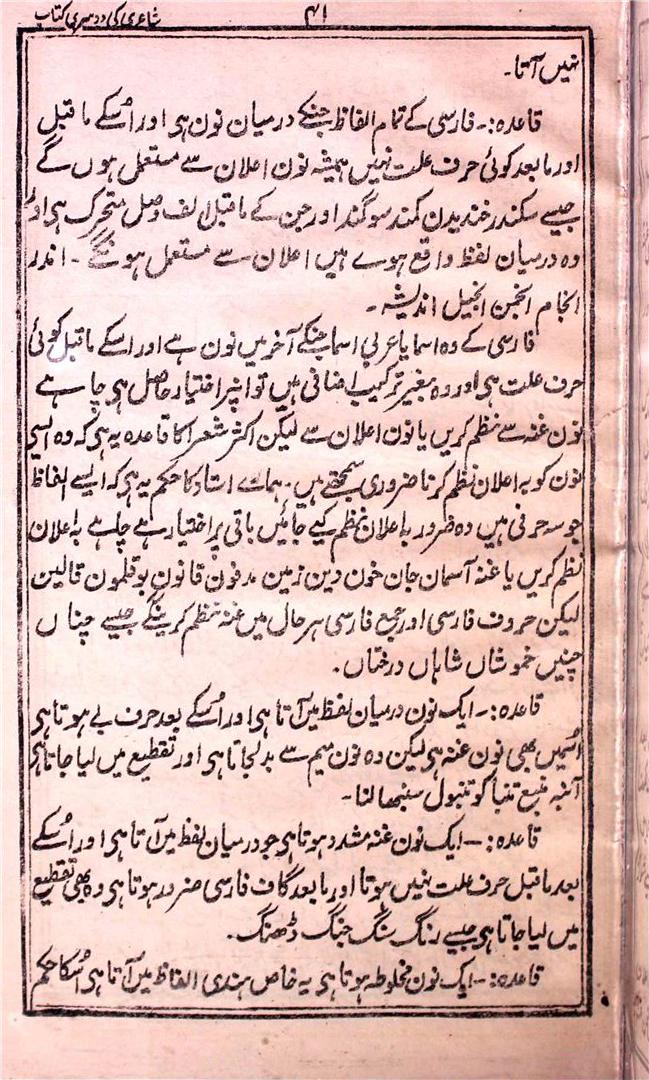 شاعری کی دوسری کتاب
۴۱
نہیں آتا۔
قاعدہ:۔ فارسی کے تمام الفاظ جنکے درمیان نون ہی اور اُسکے ماقبل
اور مابعد کوئی حرف علت نہیں ہمیشہ نون اعلان سے مستعمل ہوں گے
جیسے سکندر خندیدن کمند سوگند اور جن کے ماقبل الف وصل متحرک ہی اور
وہ درمیان لفظ واقع ہوے ہیں اعلان سے مستعمل ہونگے ۔ اندر
انجام انجمن انجیل اندیشہ۔
فارسی کے وہ اسما یا عربی اسما جنکے آخر میں نون ہے اور اسکے ماقبل کوئی
حرف علت ہی اور وہ بغیر ترکیب اضافی ہیں تو اُنپر اختیار حاصل ہی چاہے
نون غنہ سے نظم کریں یا نون اعلان سے لیکن اکثر شعرا کا قاعدہ یہ ہی کہ وہ ایسی
نون کو بہ اعلان نظم کرنا ضروری سمجھتے ہیں۔ ہمارے استاد کا حکم یہ ہی کہ ایسے الفاظ
جو سہ حرفی ہیں وہ ضرور باعلان نظم کیے جائیں باقی پر اختیار ہے چاہے بہ اعلان
نظم کریں یا غنہ آسمان جان خون دین زمین مدفون قانون بوقلمون قالین
لیکن حروف فارسی اور جمع فارسی ہر حال میں غنہ نظم کرینگے جیسے چناں
چنیں خموشاں شاہاں درختاں۔
قاعدہ:۔ ایک نون درمیان لفظ میں آتا ہی اور اُسکے بعد حرف بے ہوتا ہی
اُسمیں بھی نون غنہ ہی لیکن وہ نون میم سے بدلجاتا ہی اور تقطیع میں لیا جاتا ہی
انبہ منبع تنباکو تنبول سنبھالنا۔
قاعدہ:۔ ایک نون غنہ مشدد ہوتا ہی جو درمیان لفظ میں آتا ہی اور اُسکے
بعد ماقبل حرف علت نہیں ہوتا اور مابعد گاف فارسی ضرور ہوتا ہی وہ بھی تقطیع
میں لیا جاتا ہی جیسے رنگ سنگ جنگ ڈھنگ۔
قاعدہ:۔ ایک نون مخلوطہ ہوتا ہی یہ خاص ہندی الفاظ میں آتا ہی اُسکا حکم